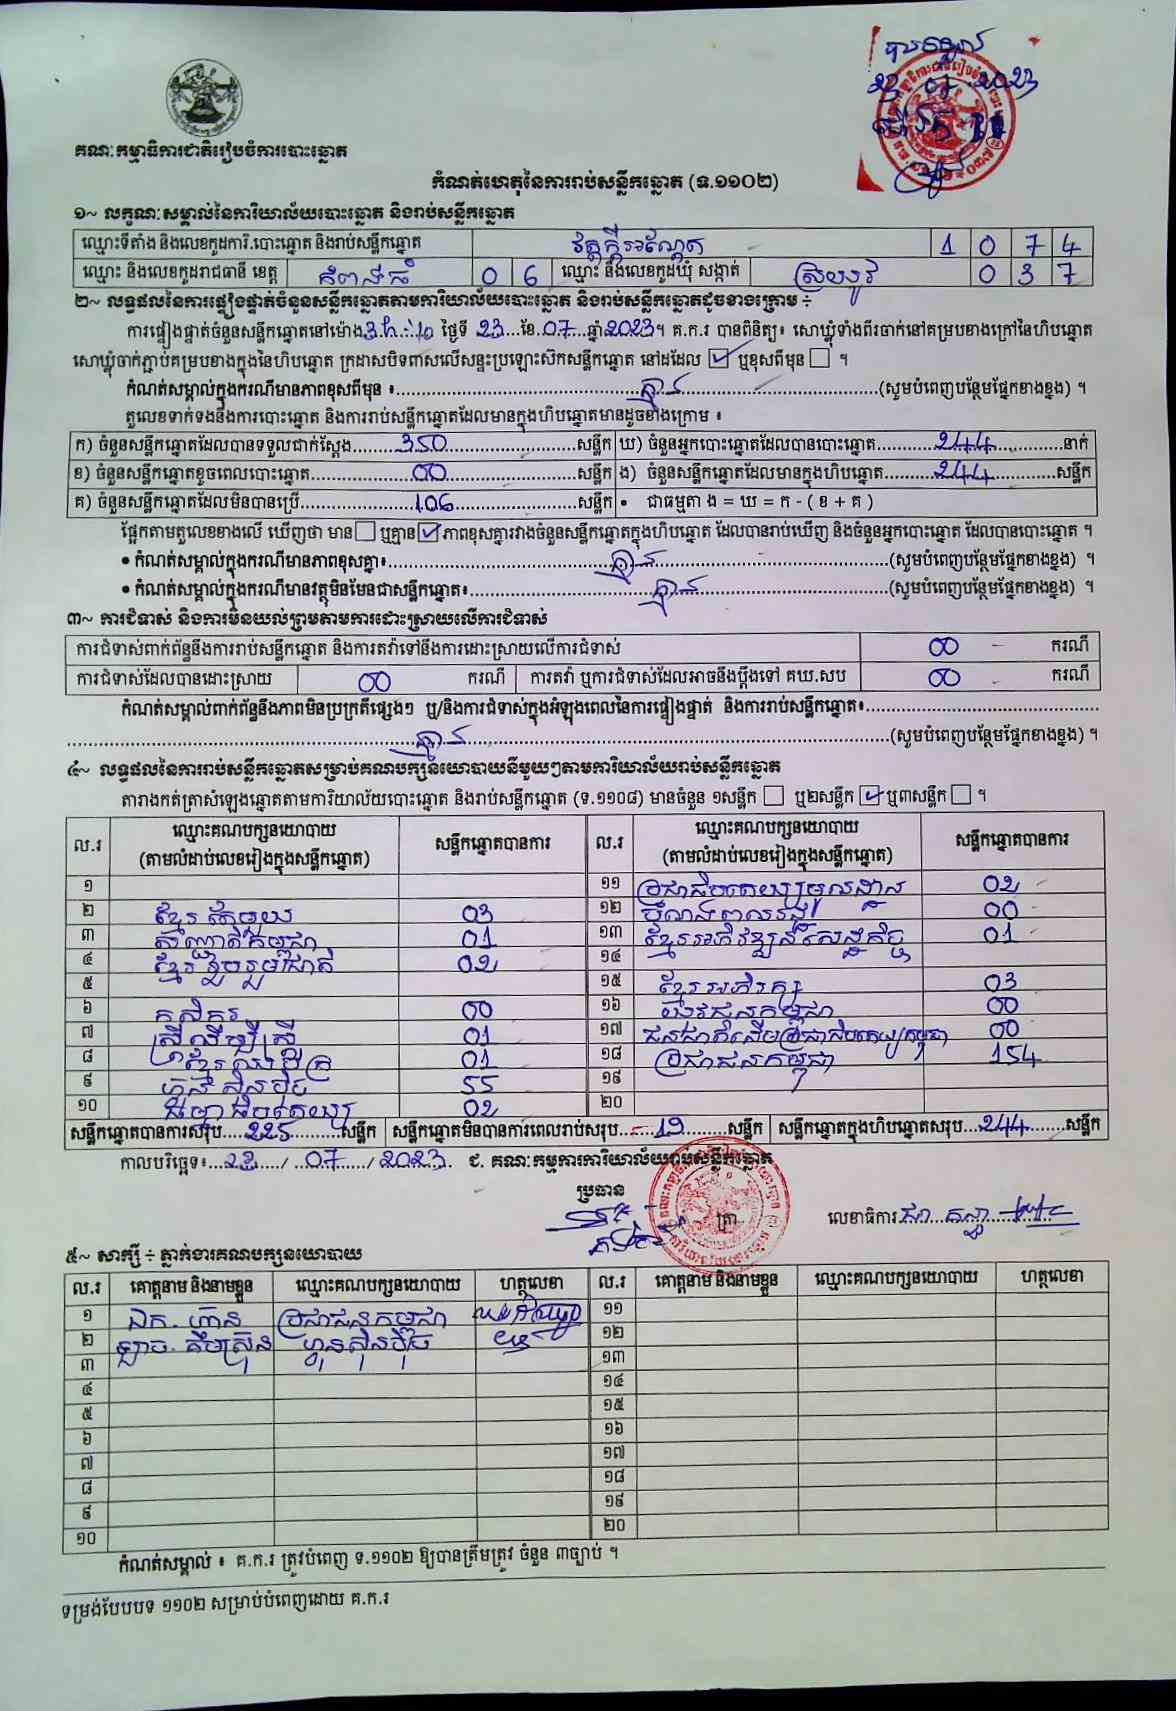 បានទទួល
23 07 2023
គណៈកម្មាធិការជាតិរៀបចំការបោះឆ្នោត
កំណត់ហេតុនៃការរាប់សន្លឹកឆ្នោត (ទ.១១០២)
១~ លក្ខណៈសម្គាល់នៃការិយាល័យបោះឆ្នោត និងរាប់សន្លឹកឆ្នោត
ឈ្មោះទីតាំង និងលេខកូដការិ.បោះឆ្នោត និងរាប់សន្លឹកឆ្នោត វត្តក្តីអណ្តែត 1 0 7 4
ឈ្មោះ និងលេខកូដរាជធានី ខេត្ត កំពង់ធំ 0 6 ឈ្មោះ និងលេខកូដឃុំ សង្កាត់ ស្រយូវ 0 3 7
២~ លទ្ធផលនៃការផ្ទៀងផ្ទាត់ចំនួនសន្លឹកឆ្នោតតាមការិយាល័យបោះឆ្នោត និងរាប់សន្លឹកឆ្នោតដូចខាងក្រោម ÷
ការផ្ទៀងផ្ទាត់ចំនួនសន្លឹកឆ្នោតនៅម៉ោង 3h:10 ថ្ងៃទី 23 ខែ 07 ឆ្នាំ 2023។ គ.ក.រ បានពិនិត្យ៖ សោឃ្លុំទាំងពីរចាក់នៅគម្របខាងក្រៅនៃហិបឆ្នោត
សោឃ្លុំចាក់ភ្ជាប់គម្របខាងក្នុងនៃហិបឆ្នោត ក្រដាសបិទពាសលើសន្ទះប្រឡោះស៊កសន្លឹកឆ្នោត នៅដដែល ☑ ឬខុសពីមុន ☐ ។
កំណត់សម្គាល់ក្នុងករណីមានភាពខុសពីមុន ៖ គ្មាន (សូមបំពេញបន្ថែមផ្នែកខាងខ្នង) ។
តួលេខទាក់ទងនឹងការបោះឆ្នោត និងការរាប់សន្លឹកឆ្នោតដែលមានក្នុងហិបឆ្នោតមានដូចខាងក្រោម ៖
ក) ចំនួនសន្លឹកឆ្នោតដែលបានទទួលជាក់ស្តែង 350 សន្លឹក ឃ) ចំនួនអ្នកបោះឆ្នោតដែលបានបោះឆ្នោត 244 នាក់
ខ) ចំនួនសន្លឹកឆ្នោតខូចពេលបោះឆ្នោត 00 សន្លឹក ង) ចំនួនសន្លឹកឆ្នោតដែលមានក្នុងហិបឆ្នោត 244 សន្លឹក
គ) ចំនួនសន្លឹកឆ្នោតដែលមិនបានប្រើ 106 សន្លឹក • ជាធម្មតា ង = ឃ = ក - ( ខ + គ )
ផ្អែកតាមតួលេខខាងលើ ឃើញថា មាន ☐ ឬគ្មាន ☑ ភាពខុសគ្នារវាងចំនួនសន្លឹកឆ្នោតក្នុងហិបឆ្នោត ដែលបានរាប់ឃើញ និងចំនួនអ្នកបោះឆ្នោត ដែលបានបោះឆ្នោត ។
• កំណត់សម្គាល់ក្នុងករណីមានភាពខុសគ្នា៖ គ្មាន (សូមបំពេញបន្ថែមផ្នែកខាងខ្នង) ។
• កំណត់សម្គាល់ក្នុងករណីមានវត្ថុមិនមែនជាសន្លឹកឆ្នោត៖ គ្មាន (សូមបំពេញបន្ថែមផ្នែកខាងខ្នង) ។
៣~ ការជំទាស់ និងការមិនយល់ព្រមតាមការដោះស្រាយលើការជំទាស់
ការជំទាស់ពាក់ព័ន្ធនឹងការរាប់សន្លឹកឆ្នោត និងការតវ៉ាទៅនឹងការដោះស្រាយលើការជំទាស់ 00 ករណី
ការជំទាស់ដែលបានដោះស្រាយ 00 ករណី ការតវ៉ា ឬការជំទាស់ដែលអាចនឹងប្តឹងទៅ គឃ.សប 00 ករណី
កំណត់សម្គាល់ពាក់ព័ន្ធនឹងភាពមិនប្រក្រតីផ្សេងៗ ឬ/និងការជំទាស់ក្នុងអំឡុងពេលនៃការផ្ទៀងផ្ទាត់ និងការរាប់សន្លឹកឆ្នោត៖
គ្មាន (សូមបំពេញបន្ថែមផ្នែកខាងខ្នង) ។
៤~ លទ្ធផលនៃការរាប់សន្លឹកឆ្នោតសម្រាប់គណបក្សនយោបាយនីមួយៗតាមការិយាល័យរាប់សន្លឹកឆ្នោត
តារាងកត់ត្រាសំឡេងឆ្នោតតាមការិយាល័យបោះឆ្នោត និងរាប់សន្លឹកឆ្នោត (ទ.១១០៨) មានចំនួន ១សន្លឹក ☐ ឬ២សន្លឹក ☑ ឬ៣សន្លឹក ☐ ។
ល.រ ឈ្មោះគណបក្សនយោបាយ (តាមលំដាប់លេខរៀងក្នុងសន្លឹកឆ្នោត) សន្លឹកឆ្នោតបានការ ល.រ ឈ្មោះគណបក្សនយោបាយ (តាមលំដាប់លេខរៀងក្នុងសន្លឹកឆ្នោត) សន្លឹកឆ្នោតបានការ
១ ១១ ប្រជាធិបតេយ្យមូលដ្ឋាន 02
២ ខ្មែរតែមួយ 03 ១២ បំណងពលរដ្ឋ 00
៣ សញ្ជាតិកម្ពុជា 01 ១៣ ខ្មែរអភិវឌ្ឍន៍សេដ្ឋកិច្ច 01
៤ ខ្មែររួបរួមជាតិ 02 ១៤
៥ ១៥ ខ្មែរអភិរក្ស 03
៦ កសិករ 00 ១៦ យុវជនកម្ពុជា 00
៧ ស្រ្តីដើម្បីស្រ្តី 01 ១៧ ជនជាតិដើមប្រជាធិបតេយ្យកម្ពុជា 00
៨ ខ្មែរឈប់ក្រ 01 ១៨ ប្រជាជនកម្ពុជា 154
៩ ហ៊្វុនស៊ិនប៉ិច 55 ១៩
១០ ធម្មាធិបតេយ្យ 02 ២០
សន្លឹកឆ្នោតបានការសរុប 225 សន្លឹក សន្លឹកឆ្នោតមិនបានការពេលរាប់សរុប 19 សន្លឹក សន្លឹកឆ្នោតក្នុងហិបឆ្នោតសរុប 244 សន្លឹក
កាលបរិច្ឆេទ៖ 23 / 07 / 2023. ជ. គណៈកម្មការការិយាល័យរាប់សន្លឹកឆ្នោត
ប្រធាន ត្រា លេខាធិការ
៥~ សាក្សី ÷ ភ្នាក់ងារគណបក្សនយោបាយ
ល.រ គោត្តនាម និងនាមខ្លួន ឈ្មោះគណបក្សនយោបាយ ហត្ថលេខា ល.រ គោត្តនាម និងនាមខ្លួន ឈ្មោះគណបក្សនយោបាយ ហត្ថលេខា
១ ឯក. ហ៊ាន ប្រជាជនកម្ពុជា ១១
២ ឡាច. គឹមស្រ៊ុន ហ្វុនស៊ិនប៉ិច ១២
៣ ១៣
៤ ១៤
៥ ១៥
៦ ១៦
៧ ១៧
៨ ១៨
៩ ១៩
១០ ២០
កំណត់សម្គាល់ ៖ គ.ក.រ ត្រូវបំពេញ ទ.១១០២ ឱ្យបានត្រឹមត្រូវ ចំនួន ៣ច្បាប់ ។
ទម្រង់បែបបទ ១១០២ សម្រាប់បំពេញដោយ គ.ក.រ